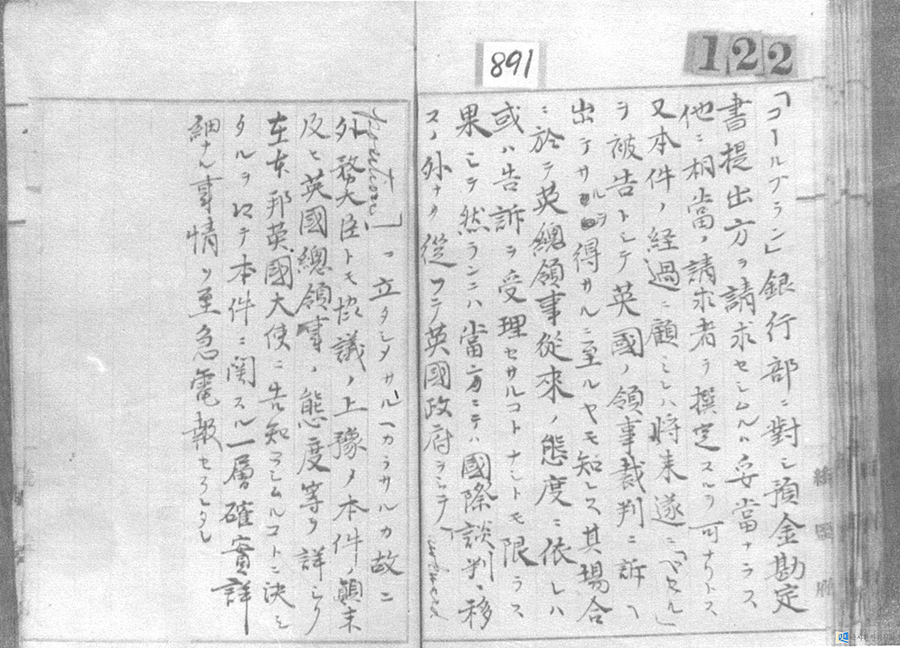 122
891
「コールブラン」銀行部ニ對シ預金勘定
書提出方ヲ請求セシムルハ妥當ナラス
他ニ相當ノ請求者ヲ撰定スルヲ可ナリトス
又本件ノ経過ニ顧ミレハ將来遂ニ「ベセル」
ヲ被告トシテ英國ノ領事裁判ニ訴ヘ
出テサルヲ得サルニ至ルヤモ知レス其場合
ニ於テ英總領事從來ノ態度ニ依レハ
或ハ告訴ヲ受理セサルコトナシトモ限ラス
果シテ然ランニハ當方ニテハ國際談判ニ移
スノ外ナク從フテ英國政府ヲシテ
」ニ立タシメサルヘカラサルカ故ニ
外務大臣トモ協議ノ上豫メ本件ノ顛末
及ヒ英國總領事ノ態度等ヲ詳シク
在本邦英國大使ニ告知セシムルコトニ決シ
タルヲ以テ本件ニ関スル一層確實詳
細ナル事情ヲ至急電報セラレタシ
統監府